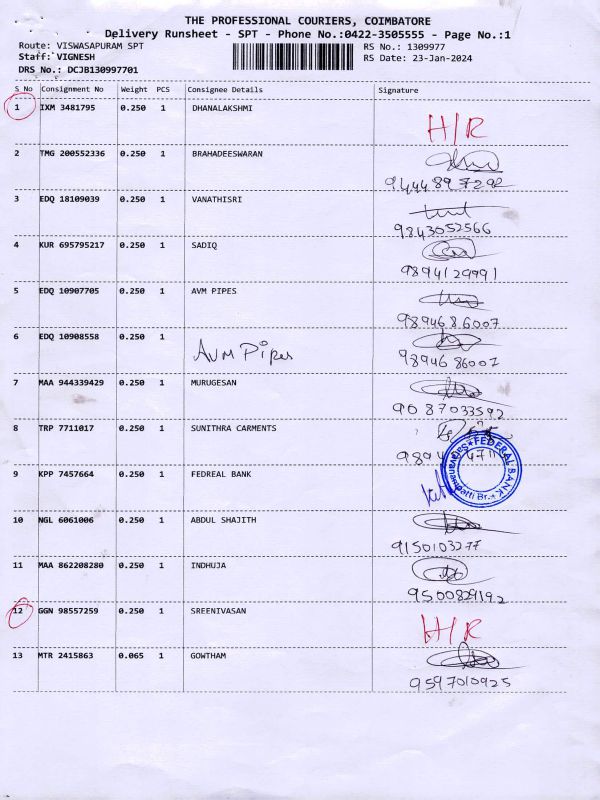 THE PROFESSIONAL COURIERS, COIMBATORE
Delivery Runsheet - SPT - Phone No.:0422-3505555 - Page No.:1
Route: VISWASAPURAM SPT RS No.: 1309977
Staff: VIGNESH RS Date: 23-Jan-2024
DRS No.: DCJB130997701
S No Consignment No Weight PCS Consignee Details Signature
1 IXM 3481795 0.250 1 DHANALAKSHMI
H/R
2 TMG 200552336 0.250 1 BRAHADEESWARAN
9444897292
3 EDQ 18109039 0.250 1 VANATHISRI
9843052566
4 KUR 695795217 0.250 1 SADIQ
9894129991
5 EDQ 10907705 0.250 1 AVM PIPES
9894686007
6 EDQ 10908558 0.250 1 AVM Pipes
9894686007
7 MAA 944339429 0.250 1 MURUGESAN
9087033592
8 TRP 7711017 0.250 1 SUNITHRA CARMENTS
9 KPP 7457664 0.250 1 FEDREAL BANK
FEDERAL BANK
Saravanampatti Br.
10 NGL 6061006 0.250 1 ABDUL SHAJITH
9150103277
11 MAA 862208280 0.250 1 INDHUJA
9500829192
12 GGN 98557259 0.250 1 SREENIVASAN
H/R
13 MTR 2415863 0.065 1 GOWTHAM
9597010925